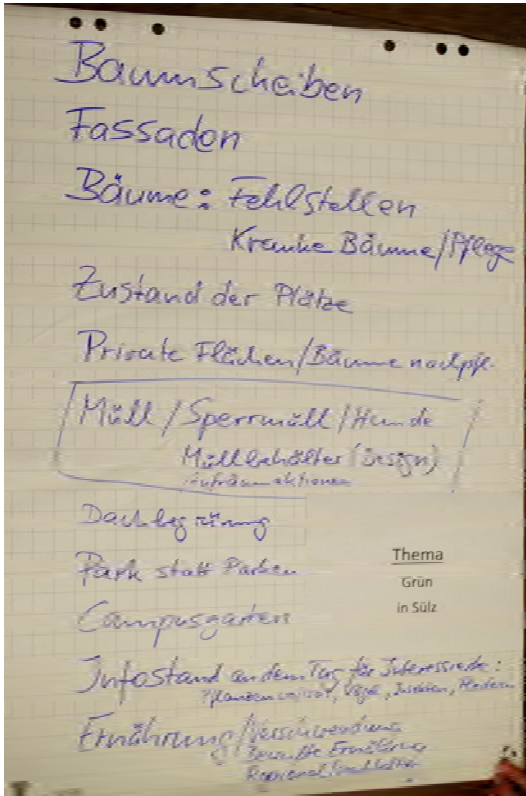 Baumscheiben
Fassaden
Bäume: Fehlstellen
Kranke Bäume/Pflege
Zustand der Plätze
Private Flächen/Bäume nachpfl.
Müll/Sperrmüll/Hunde
Müllbehälter (Design)
Aufräumaktionen
Dachbegrünung
Park statt Parken
Thema
Grün
in Sülz
Campusgarten
Infostand an dem Tag für Interessierte:
Vögel, Insekten,
Ernährung/Verschwendung
Bewußte Ernährung
Regional